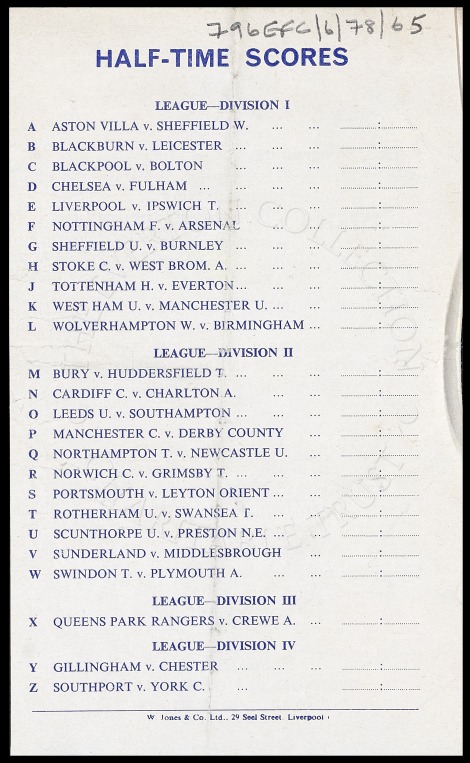 796EFC/6/78/65
HALF-TIME SCORES
LEAGUE—DIVISION I
A ASTON VILLA v. SHEFFIELD W. ... ... ............:............
B BLACKBURN v. LEICESTER ... ... ............:............
C BLACKPOOL v. BOLTON ... ... ............:............
D CHELSEA v. FULHAM ... ... ... ............:............
E LIVERPOOL v. IPSWICH T. ... ... ............:............
F NOTTINGHAM F. v. ARSENAL ... ... ............:............
G SHEFFIELD U. v. BURNLEY ... ... ... ............:............
H STOKE C. v. WEST BROM. A. ... ... ... ............:............
J TOTTENHAM H. v. EVERTON... ... ... ............:............
K WEST HAM U. v. MANCHESTER U. ... ... ............:............
L WOLVERHAMPTON W. v. BIRMINGHAM ... ............:............
LEAGUE—DIVISION II
M BURY v. HUDDERSFIELD T. ... ... ... ............:............
N CARDIFF C. v. CHARLTON A. ... ... ............:............
O LEEDS U. v. SOUTHAMPTON ... ... ... ............:............
P MANCHESTER C. v. DERBY COUNTY ... ............:............
Q NORTHAMPTON T. v. NEWCASTLE U. ... ............:............
R NORWICH C. v. GRIMSBY T. ... ... ... ............:............
S PORTSMOUTH v. LEYTON ORIENT ... ... ............:............
T ROTHERHAM U. v. SWANSEA T. ... ... ............:............
U SCUNTHORPE U. v. PRESTON N.E. ... ... ............:............
V SUNDERLAND v. MIDDLESBROUGH ... ............:............
W SWINDON T. v. PLYMOUTH A. ... ... ............:............
LEAGUE—DIVISION III
X QUEENS PARK RANGERS v. CREWE A. ... ............:............
LEAGUE—DIVISION IV
Y GILLINGHAM v. CHESTER ... ... ... ............:............
Z SOUTHPORT v. YORK C. ... ............:............
W. Jones & Co. Ltd., 29 Seel Street. Liverpool 1